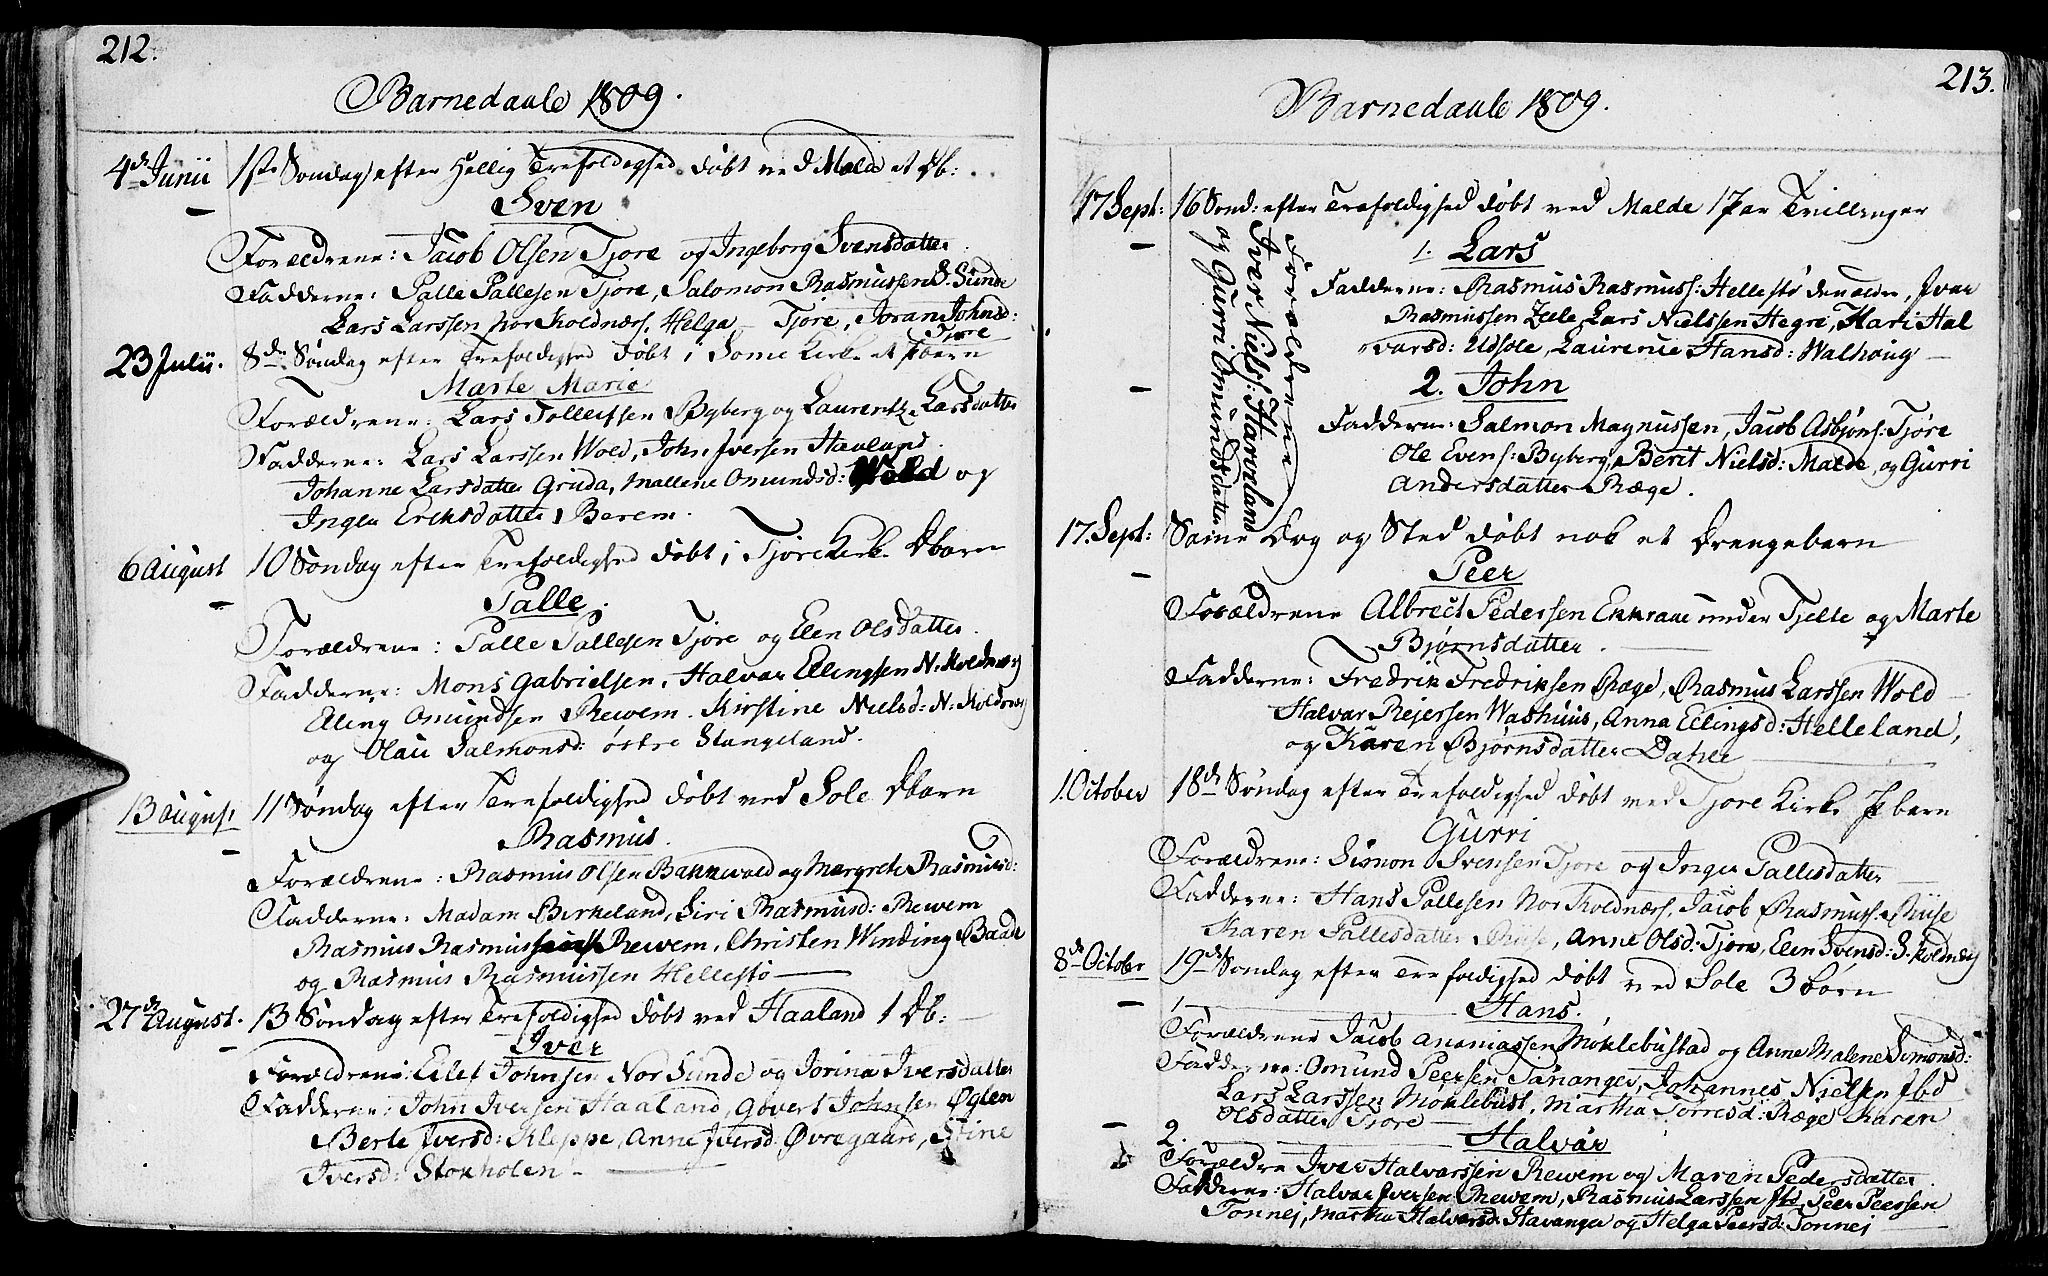 212.
Barnedaab 1809.
4de Junii 1ste Søndag efter Hellig Trefoldoghed døbt ved Malde et Db:
Sven
Forældrene: Jacob Olsen Tjore og Ingeborg Svensdatter
Fadderne: Palle Pallesen Tjore, Salomon Rasmussen S. Sunde
Lars Larssen Nor Koldnæs, Helga Tjore, Joran Johnsd:
Tjore
23 Julii. 8de Søndag efter Trefoldighed døbt i Some Kirke et barn
Marte Marie
Forældrene: Lars Tolleifsen Byberg og Laurentze Larsdatter
Fadderne: Lars Larssen Wold, John Iversen Haaland
Johanne Larsdatter Gruda, Mallene Omundsd: Wold og
Inger Eriksdatter Berem.
6 August 10 Søndag efter Trefoldighed døbt i Tjore Kirke Dbarn
Palle
Forældrene: Palle Pallesen Tjore og Elen Olsdatter
Fadderne: Mons Gabrielsen, Halvar Ellingsen N. Koldnæs
Eling Omundsen Rewem. Kirstine Nielsd: N. Koldnæs
og Olau Salmonsd: østre Stangeland.
13 August 11 Søndag efter Trefoldighed døbt ved Sole Dbarn
Rasmus.
Forældrene: Rasmus Olsen Bakkevold og Margrete Rasmusd:
Fadderne: Madam Birkeland, Siri Rasmusd: Rewem
Rasmus Rasmussen Rewem, Christen Winding Baade
og Rasmus Rasmussen Hellestø
27de August. 13 Søndag efter Trefoldighed døbt ved Haaland 1 Db:
Iver
Forældrene: Eilef Johnsen Nor Sunde og Jorina Iversdatter
Fadderne: John Iversen Haaland, Govert Johnsen Øglen
Berte Iversd: Kleppe, Anne Iversd Øvregaard, Stine
Iversd: Stokholen
213.
Barnedaab 1809.
17 Sept: 16 Sønd: efter Trefoldighed døbt ved Malde 1 Par Tvillinger
Forældrene
Iver Nielss: Haaland
og Gurri Omundsdatter
1. Lars
Fadderne: Rasmus Rasmuss: Hellestø den ældre, Ivar
Rasmussen Zeele, Lars Nielssen Hegre, Kari Hal
varsd: Udsole, Laurense Hansd: Walhoug
2. John
Fadderne: Salmon Magnussen, Jacob Asbjøns: Tjøre
Ole Evens: Byberg, Berit Nielsd: Malde, og Gurri
Andersdatter Ræge.
17. Sept: Samme Dag og Sted døbt nok et Drengebarn
Peer
Forældrene Albrect Pedersen under Tjelte og Marte
Bjørnsdatter.
Fadderne: Fredrik Fredriksen Ræge, Rasmus Larssen Wold
Halvar Rejersen Washuus, Anna Ellingsd: Helleland,
og Karen Bjørnsdatter Dahle
1. October 18de Søndag efter Trefoldighed døbt ved Tjore Kirke Pbarn
Gurri
Forældrene: Simon Svensen Tjore og Inger Pallesdatter
Fadderne: Hans Pallesen Nor Koldnæs, Jacob Rasmuss: Riise
Karen Pallesdatter Riise, Anne Olsd: Tjore, Elen Svensd: S. Koldnæs
8de October 19de Søndag efter Trefoldighed døbt ved Sole 3 børn
1 Hans.
Forældrene Jacob Ananiassen Møklebustad og Anne Malene Simonsd:
Fadderne: Omund Peersen Tananger, Johannes Nielsen Ibd
Lars Larssen Møklebust, Martha Torresd: Ræge Karen
Olsdatter Tjore
2. Halvar
Forældre Iver Halvarssen Rewem og Maren Pedersdatter
Fadderne: Halvar Iversen Rewem, Rasmus Larssen Ibd, Peer Peersen
Tonnej, Martha Halvarsd: Stavanger og Helga Peersd: Tonnej